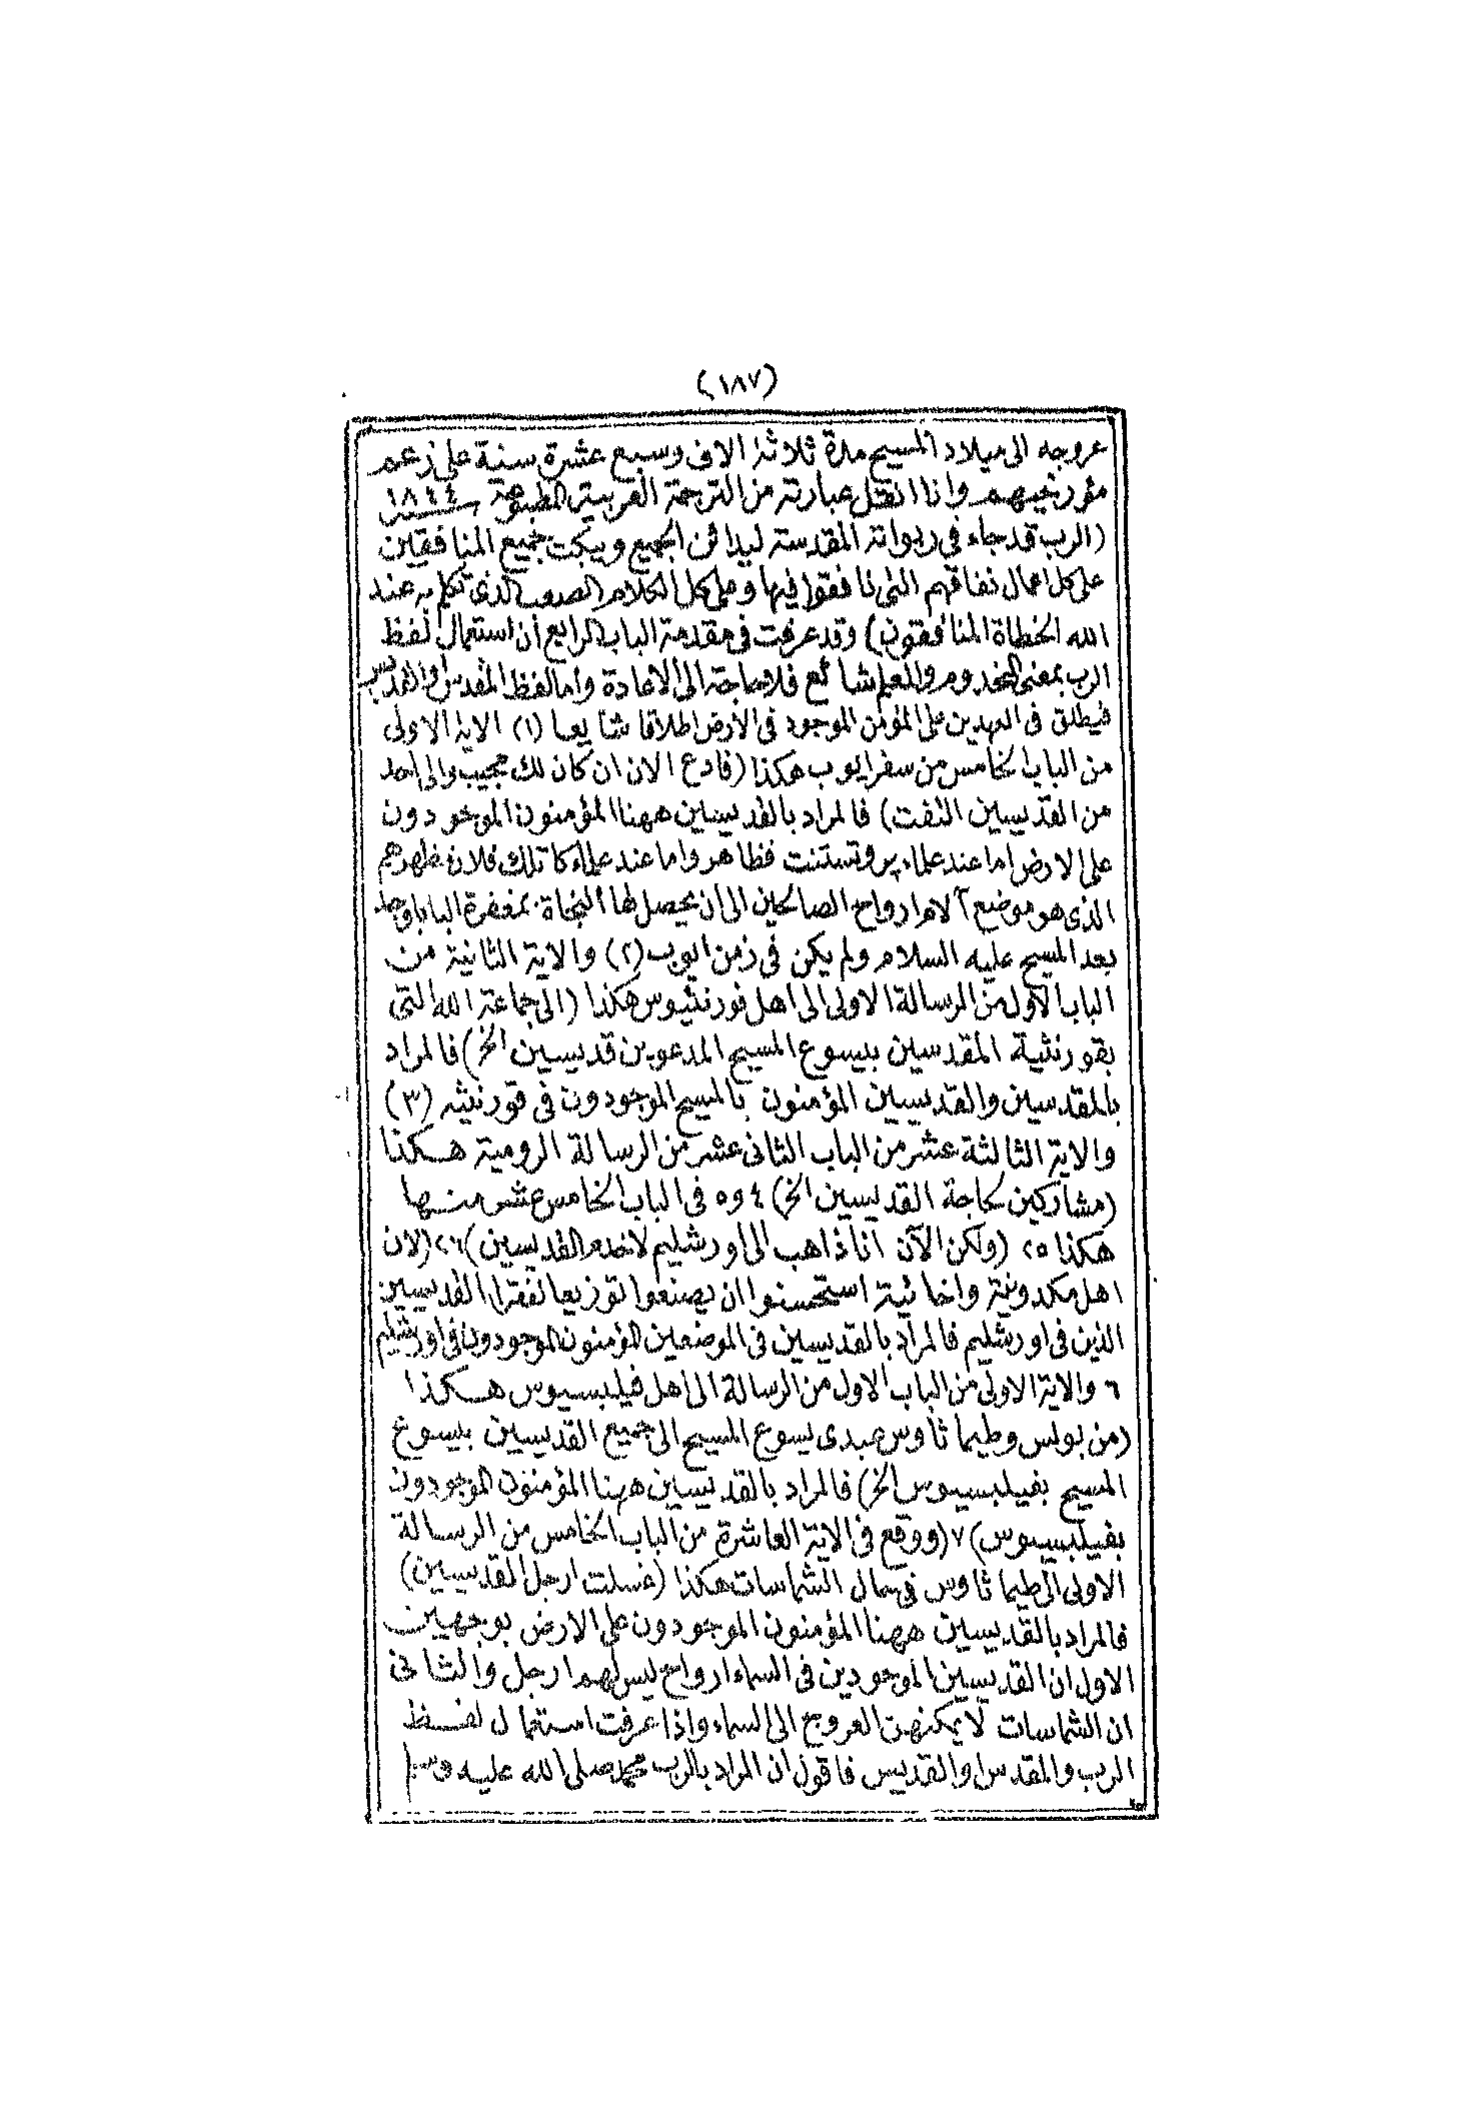 (١٨٧)
عروجه الى ميلاد المسيح مدة ثلاثة الاف وسبع عشرة سنة على زعم
مؤرخيهم وانا انقل عبارته من الترجمة العربية المطبوعة ١٨٤٤
(الرب قد جاء فى ربواته المقدسة ليدائن الجميع ويبكت جميع المنافقين
على كل اعمال نفاقهم التى نافقوا فيها وعلى كل الكلام الصعب الذى تكلم به عند
الله الخطاة المنافقون) وقد عرفت فى مقدمة الباب الرابع أن استعمال لفظ
الرب بمعنى المخدوم والمعلم شائع فلا حاجة الى الاعادة وأما لفظ المقدس والقديس
فيطلق فى العهدين على المؤمن الموجود فى الأرض اطلاقا شايعا (١) الاية الاولى
من الباب الخامس من سفر ايوب هكذا (فادع الان ان كان لك مجيب والى احد
من القديسين التفت) فالمراد بالقديسين ههنا المؤمنون الموجودون
على الارض اما عند علماء پروتستنت فظاهر واما عند علماء كاتلك فلان مطهرهم
الذى هو موضع آلام ارواح الصالحين الى ان يحصل لها النجاة بمغفرة البابا وجد
بعد المسيح عليه السلام ولم يكن فى زمن ايوب (٢) والاية الثانية من
الباب الاول من الرسالة الاولى الى اهل قورنثيوس هكذا (الى جماعة الله التى
بقورنثية المقدسين بيسوع المسيح المدعوين قديسين الخ) فالمراد
بالمقدسين والقديسين المؤمنون بالمسيح الموجودون فى قورنثيه (٣)
والاية الثالثة عشر من الباب الثانى عشر من الرسالة الرومية هكذا
(مشاركين لحاجة القديسين الخ) ٤ و٥ فى الباب الخامس عشر منها
هكذا ٢٥ (ولكن الآن أنا ذاهب الى اورشليم لاخدم القديسين) ٢٦ (لان
اهل مكدونية واخائية استحسنوا ان يصنعوا توزيعا لفقراء القديسين
الذين فى اورشليم فالمراد بالقديسين فى الموضعين المؤمنون الموجودون فى اورشليم
٦ والاية الاولى من الباب الاول من الرسالة الى اهل فيلبسيوس هكذا
(من بولس وطيماثاوس عبدى يسوع المسيح الى جميع القديسين بيسوع
المسيح بفيلبسيوس الخ) فالمراد بالقديسين ههنا المؤمنون الموجودون
بفيلبسيوس) ٧ (ووقع فى الاية العاشرة من الباب الخامس من الرسالة
الاولى الى طيماثاوس فى حال الشماسات هكذا (غسلت ارجل القديسين)
فالمراد بالقديسين ههنا المؤمنون الموجودون على الارض بوجهين
الاول ان القديسين الموجودين فى السماء ارواح ليس لهم ارجل والثانى
ان الشماسات لا يمكنهن العروج الى السماء واذا عرفت استعمال لفظ
الرب والمقدس والقديس فاقول ان المراد بالرب محمد صلى الله عليه وسلم